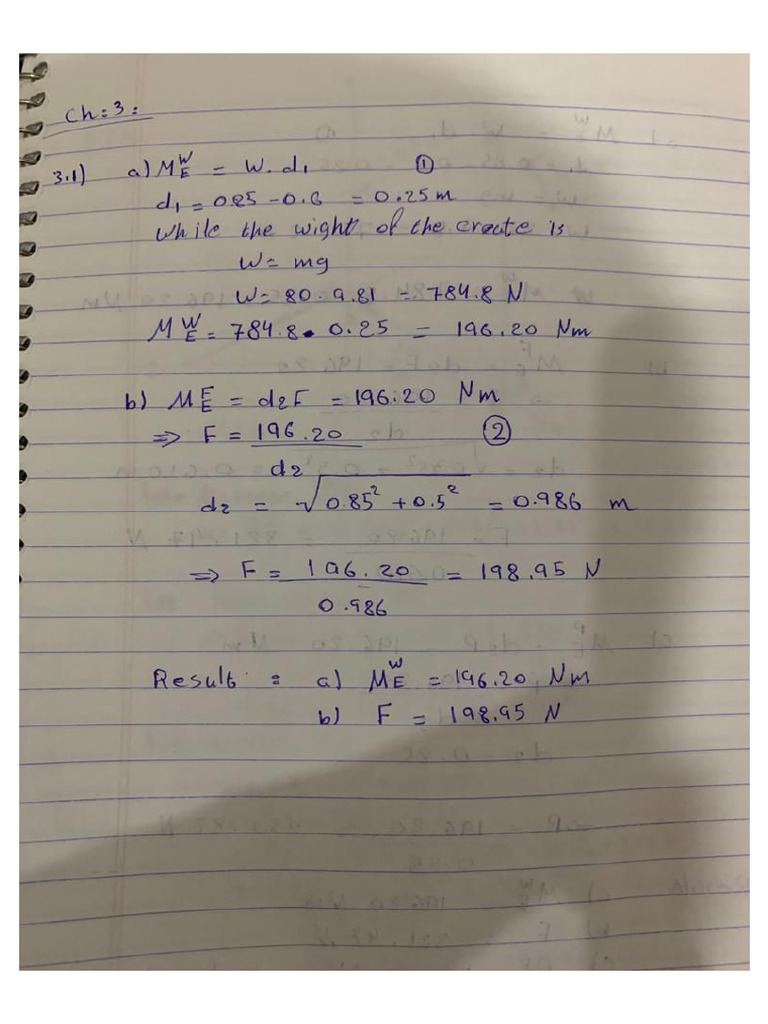 Ch:3:
3.1) a) M_E^W = W. d₁ ①
d₁ = 0.85 - 0.6 = 0.25 m
While the wight of the create is
W = mg
W = 80 . 9.81 = 784.8 N
M_E^W = 784.8 • 0.25 = 196.20 Nm
b) M_E^F = d₂F = 196.20 Nm
⇒ F = 196.20 / d₂ ②
d₂ = √(0.85² + 0.5²) = 0.986 m
⇒ F = 196.20 / 0.986 = 198.95 N
Result : a) M_E^W = 196.20 Nm
b) F = 198.95 N